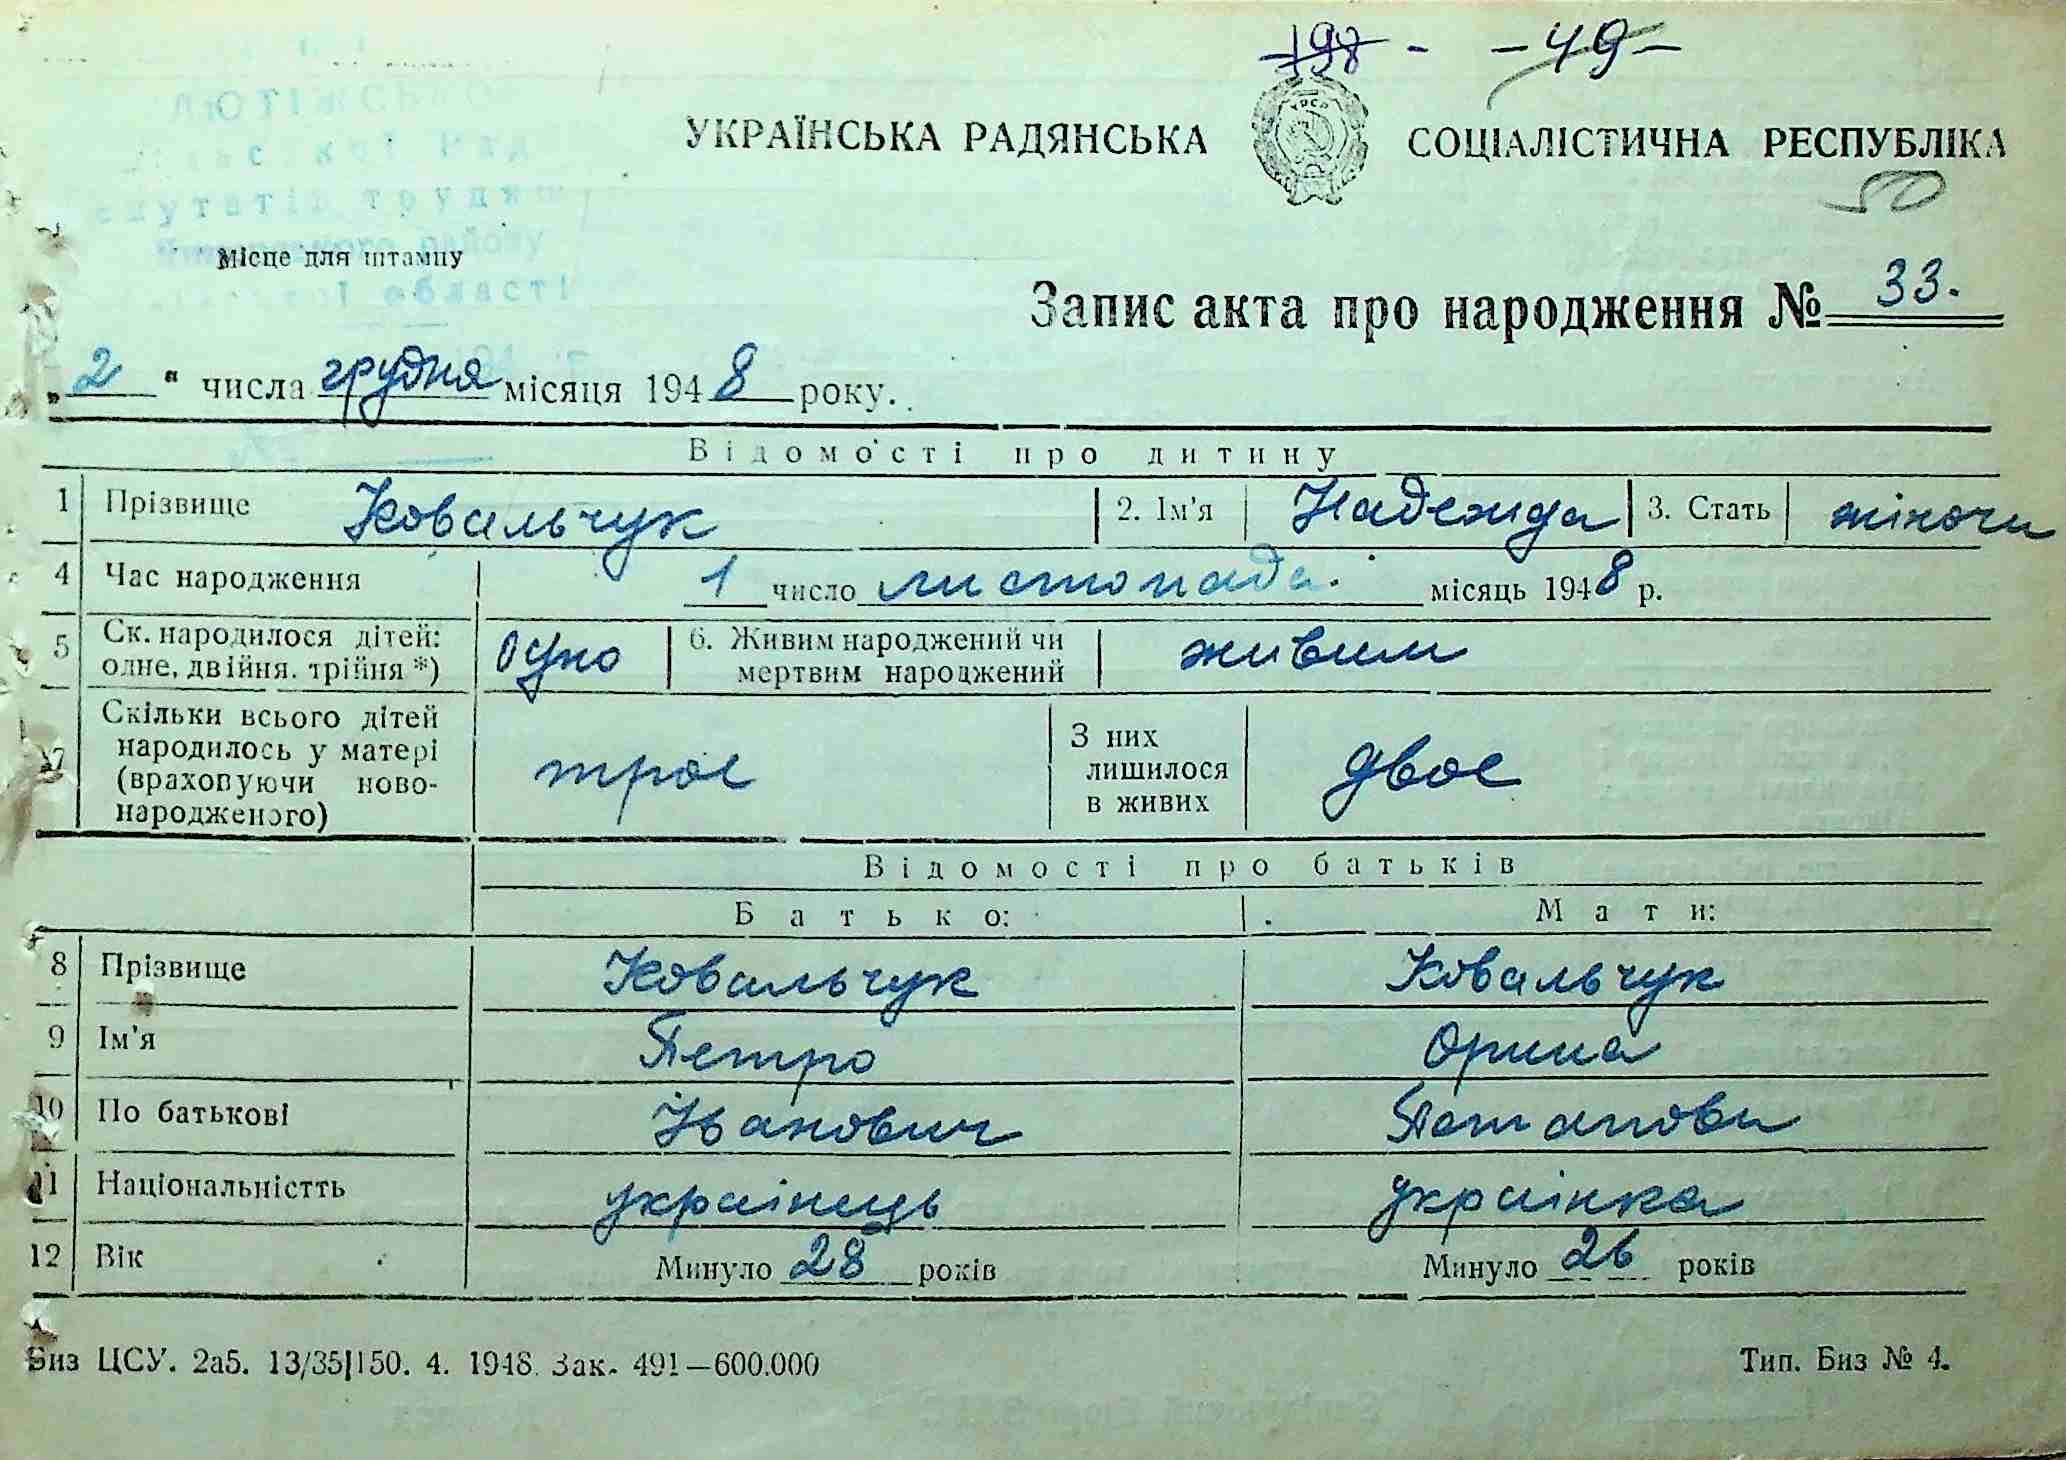 198 - - 49 -
УКРАЇНСЬКА РАДЯНСЬКА СОЦІАЛІСТИЧНА РЕСПУБЛІКА
50
ЛЮТІЖСЬКО
трудящ
району
області
Місце для штампу
Запис акта про народження № 33.
„2“ числа грудня місяця 1948 року.
Відомості про дитину
1 Прізвище Ковальчук 2. Ім'я Надежда 3. Стать жіноча
4 Час народження 1 число листопада місяць 1948 р.
5 Ск. народилося дітей: одне, двійня, трійня *) Одно 6. Живим народжений чи мертвим народжений живим
7 Скільки всього дітей народилось у матері (враховуючи новонародженого) троє З них лишилося в живих двоє
Відомості про батьків
Батько: Мати:
8 Прізвище Ковальчук Ковальчук
9 Ім'я Петро Орина
10 По батькові Іванович
11 Національністть українець українка
12 Вік Минуло 28 років Минуло 26 років
Биз ЦСУ. 2а5. 13/35|150. 4. 1948. Зак. 491—600.000 Тип. Биз № 4.